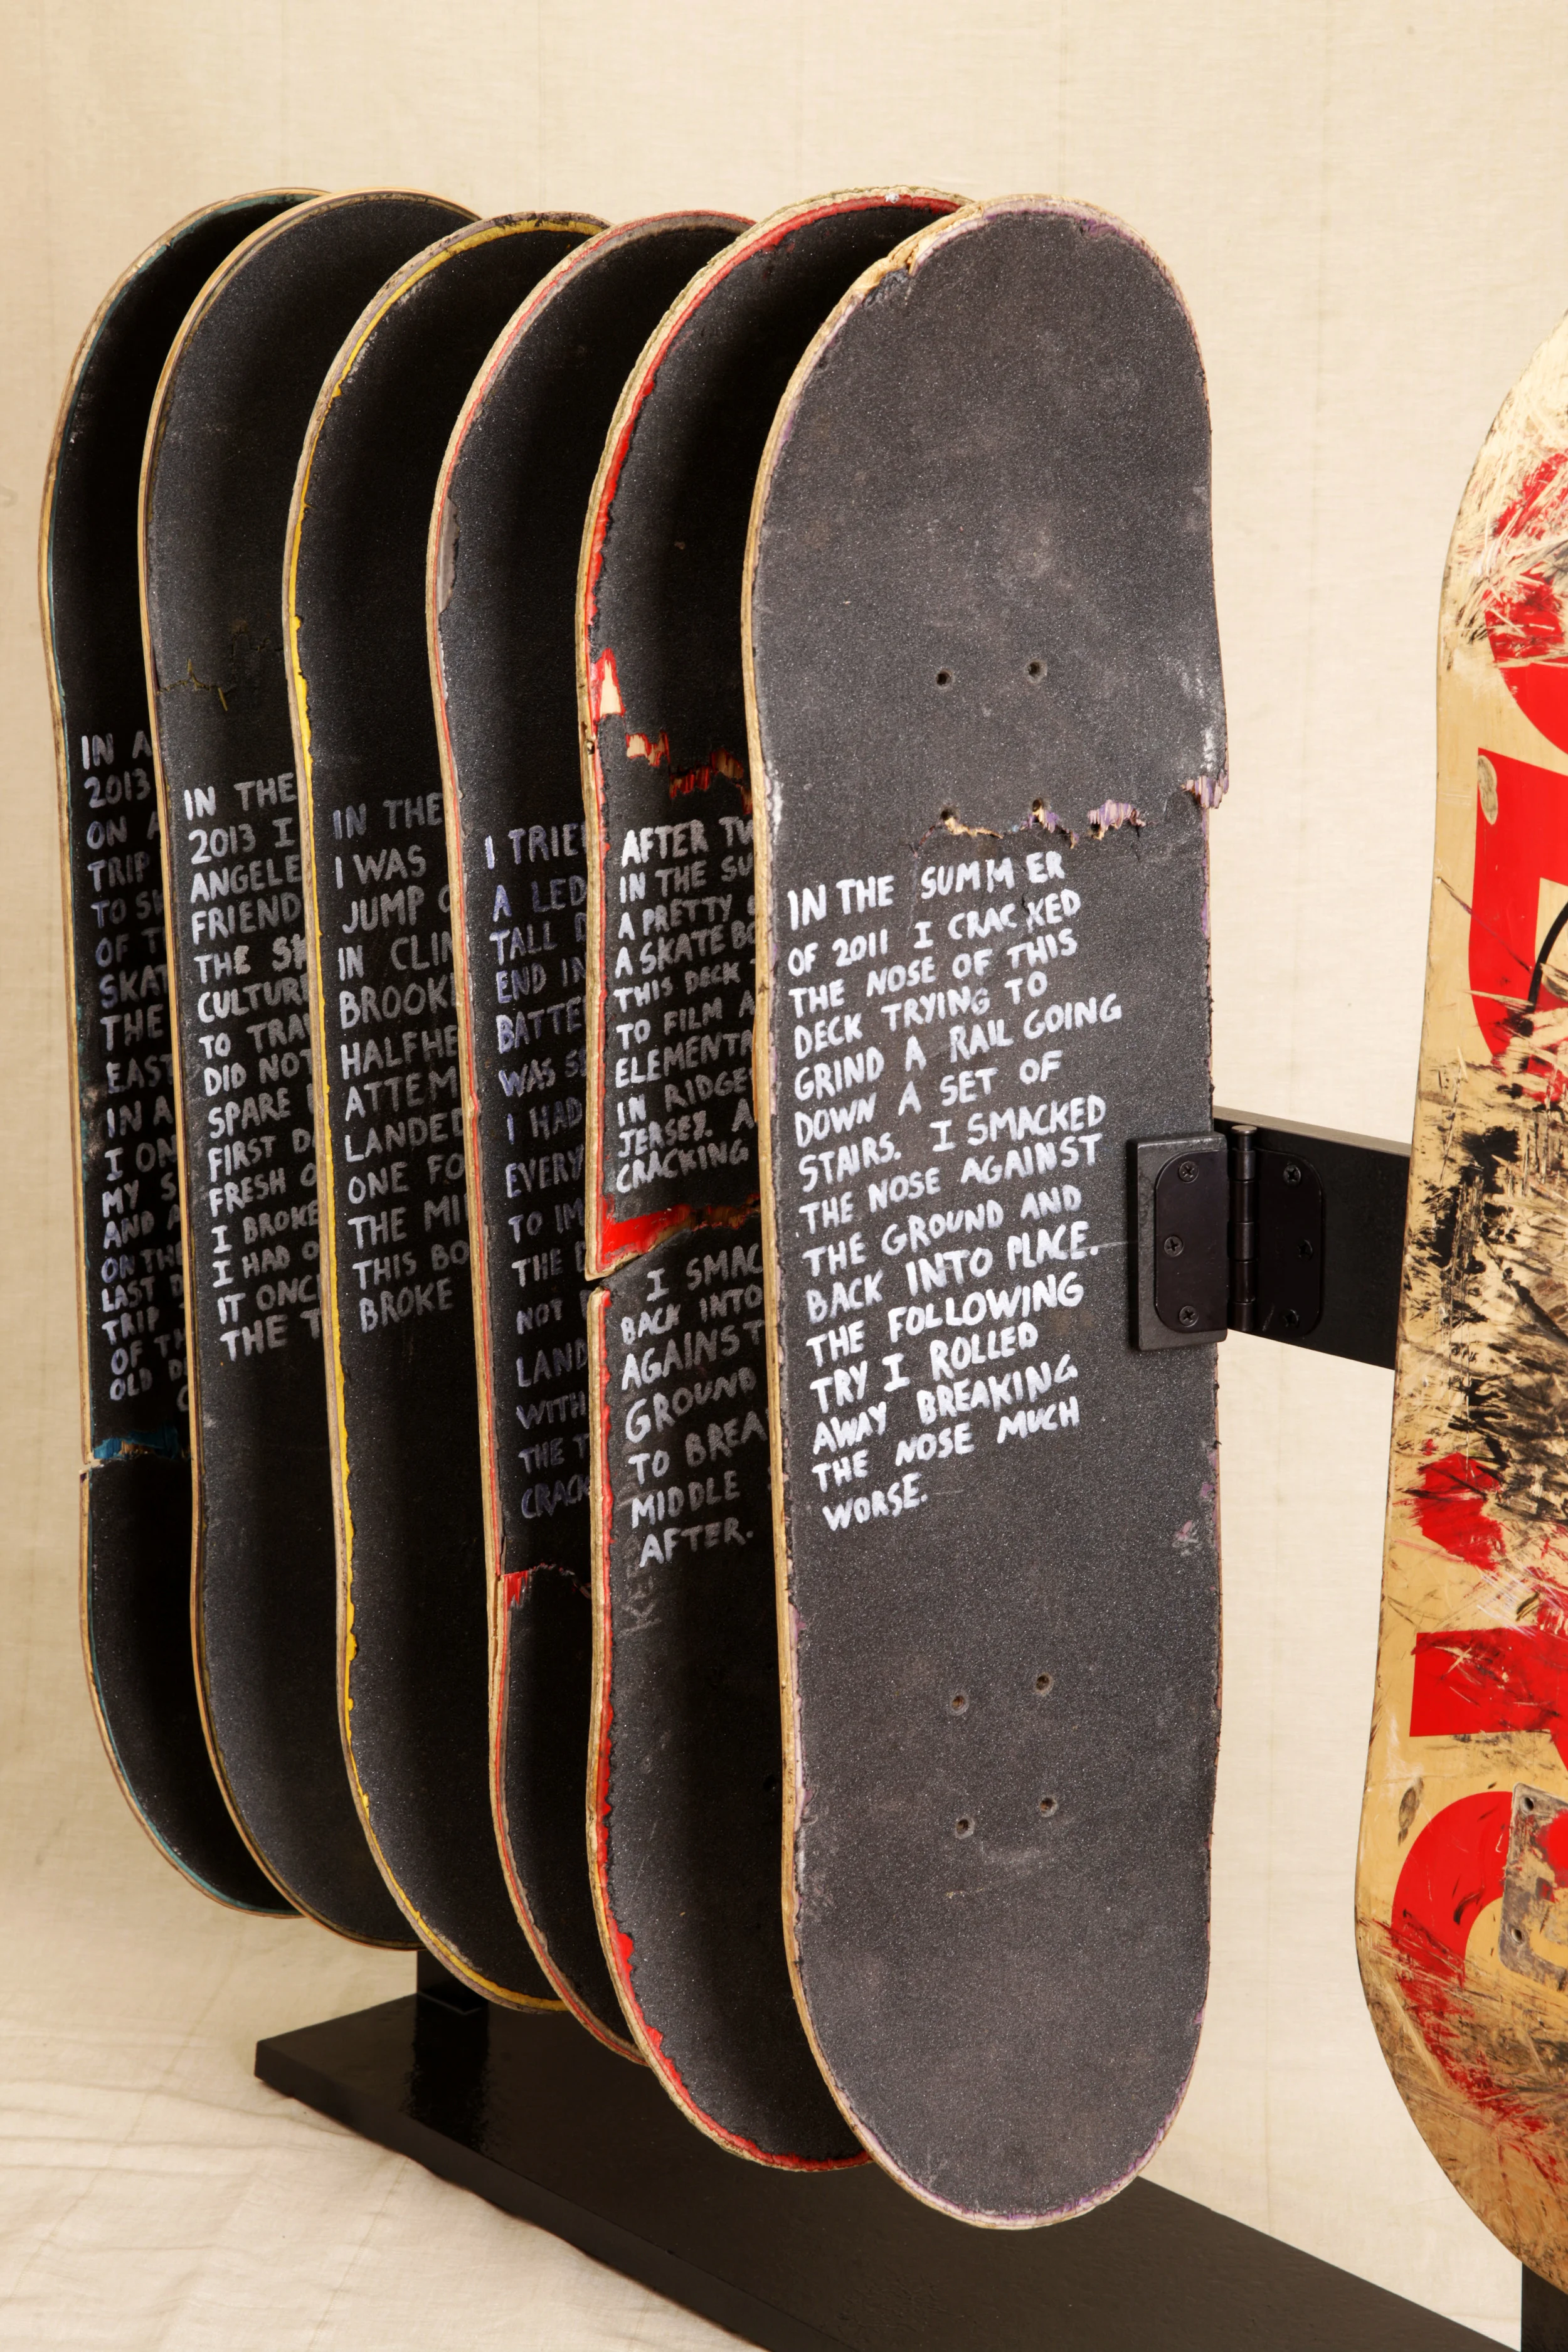 IN A
2013
ON A
TRIP
TO
OF
THE
EAST
IN A
I ON
MY S
AND A
ON THE
LAST D
TRIP
OF TH
OLD
IN THE
2013 I
ANGELE
FRIEND
THE SK
CULTUR
TO TRA
DID NOT
SPARE
FIRST D
FRESH O
I BROKE
I HAD O
IT ONC
THE T
IN THE
I WAS
JUMP O
IN CLIN
BROOK
HALFHE
ATTEM
LANDED
ONE FO
THE MI
THIS BO
BROKE
I TRIE
A LED
TALL
END IN
BATTE
WAS SE
I HAD
EVERY
TO IM
THE
NOT
LAND
WITH
THE T
CRACK
AFTER TW
IN THE SU
A PRETTY
A SKATEBO
THIS DECK
TO FILM A
ELEMENTA
IN RIDGE
JERSEY. A
CRACKING
I SMAC
BACK INTO
AGAINST
GROUND
TO BREA
MIDDLE
AFTER.
IN THE SUMMER
OF 2011 I CRACKED
THE NOSE OF THIS
DECK TRYING TO
GRIND A RAIL GOING
DOWN A SET OF
STAIRS. I SMACKED
THE NOSE AGAINST
THE GROUND AND
BACK INTO PLACE.
THE FOLLOWING
TRY I ROLLED
AWAY BREAKING
THE NOSE MUCH
WORSE.